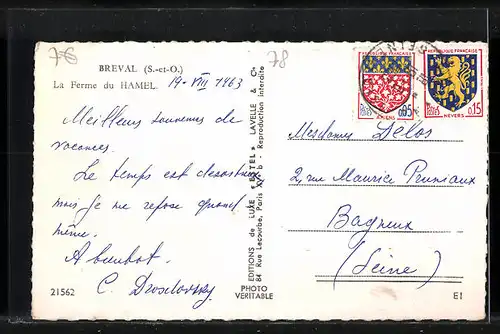 76
78
BREVAL (S.-et-O.)
La Ferme du HAMEL
19-VIII 1963
Meilleurs souvenirs de
vacances.
Le temps est desastreux
mais je me repose quand
même.
A bientot.
C.
21562
PHOTO
VERITABLE
EDITIONS de LUXE "ESTEL" LAVELLE & Cie
84 Rue Lecourbe, Paris XV - Reproduction interdite
REPUBLIQUE FRANÇAISE
POSTES
0,05
AMIENS
REPUBLIQUE FRANÇAISE
POSTES
0,15
NEVERS
Mesdames Delos
2, rue Maurice Pruniaux
Bagneux
(Seine)
E1